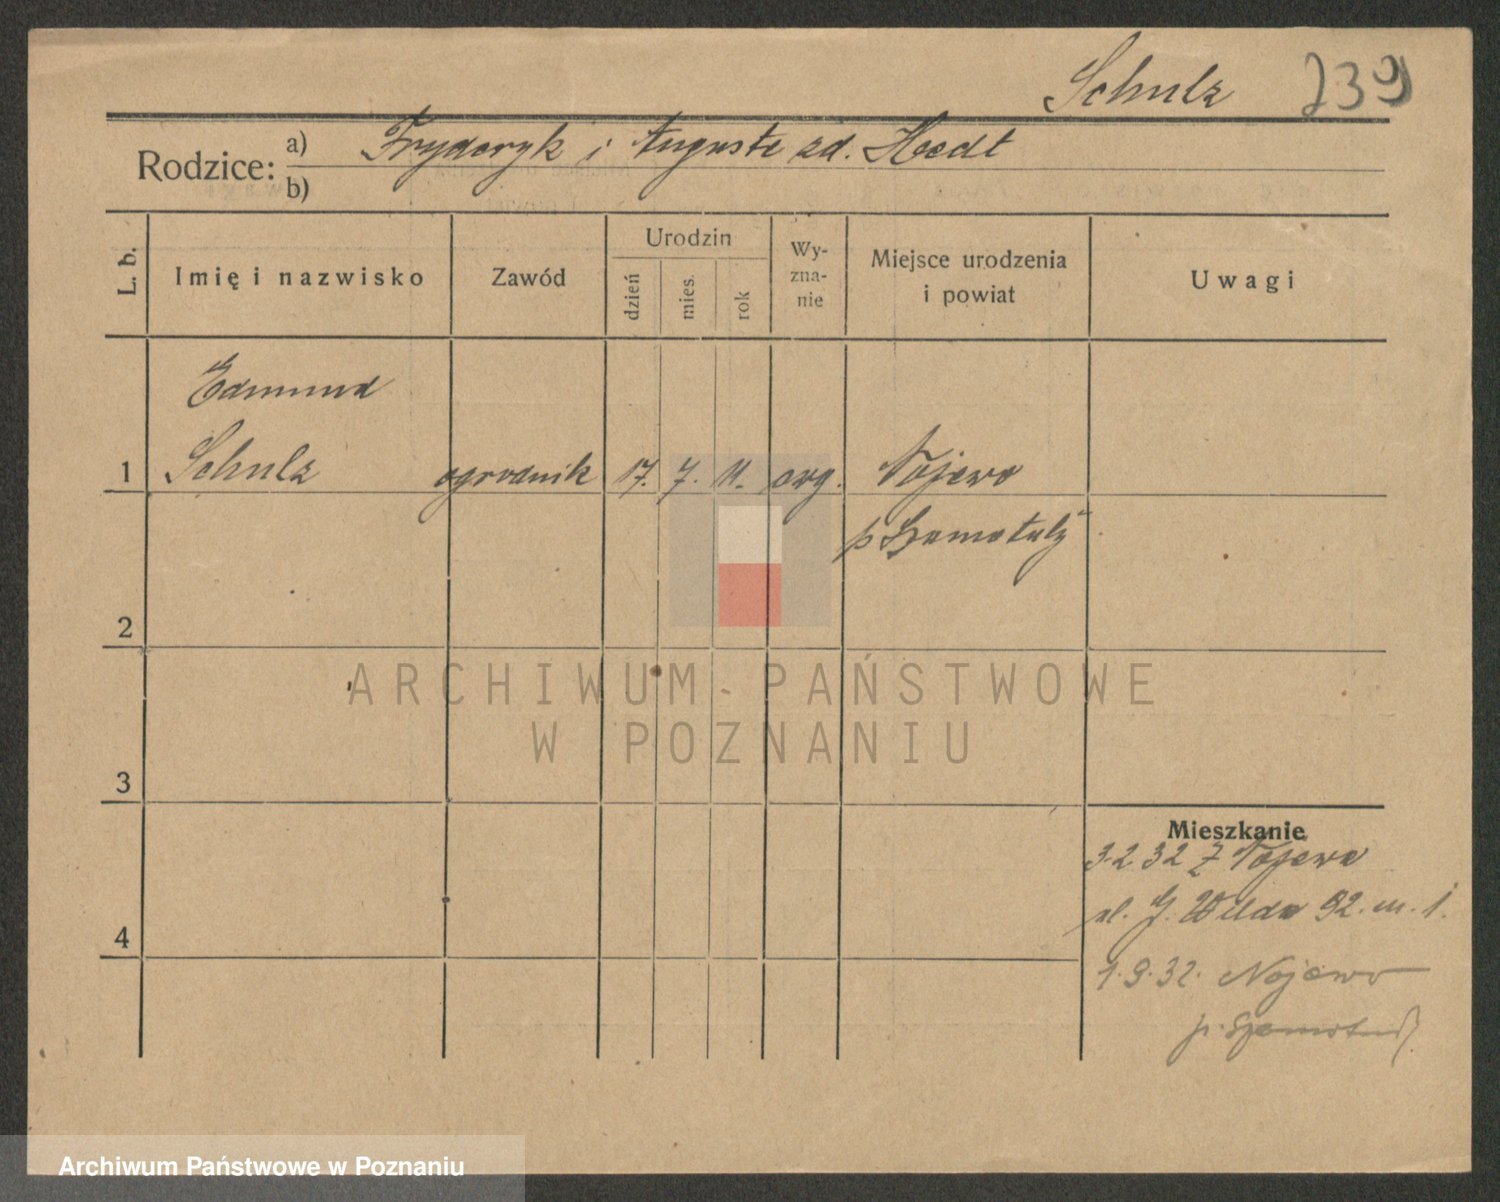 Schulz 239
Rodzice: a) Fryderyk i Auguste zd. Hedt
b)
L. b. Imię i nazwisko Zawód Urodzin dzień mies. rok Wyznanie Miejsce urodzenia i powiat Uwagi
Edmund
1 Schulz ogrodnik 17. 7. 11. ewg. Nojewo
p Szamotuły
2
ARCHIWUM PAŃSTWOWE
W POZNANIU
3
Mieszkanie
3.2 32 z Nojewa
ul. G. Wilda 92. m. 1.
4
1.9.32. Nojewo
p. Szamotuły
Archiwum Państwowe w Poznaniu